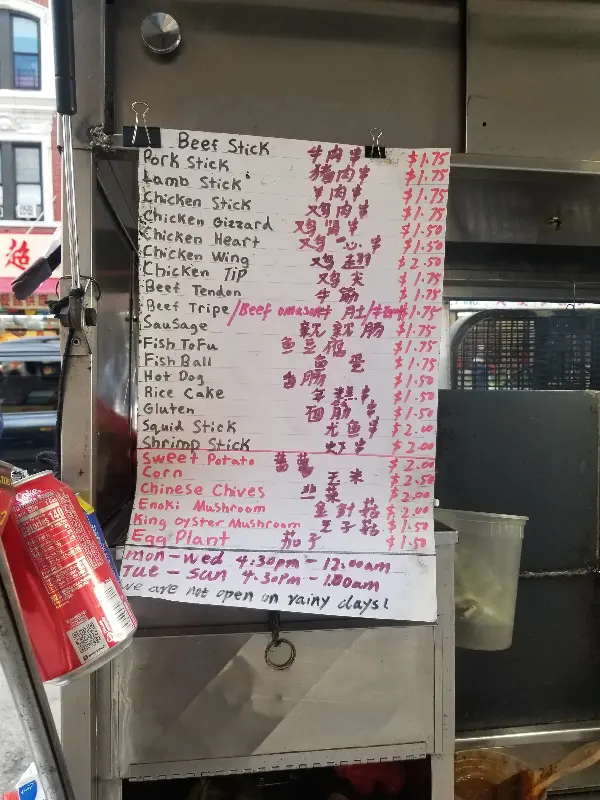 Beef Stick 牛肉串 $1.75
Pork Stick 猪肉串 $1.75
Lamb Stick 羊肉串 $1.75
Chicken Stick 鸡肉串 $1.75
Chicken Gizzard 鸡肾串 $1.50
Chicken Heart 鸡心串 $1.50
Chicken Wing 鸡翅 $2.50
Chicken Tip 鸡尖 $1.75
Beef Tendon 牛筋 $1.75
Beef Tripe/Beef omasum 肚/ $1.75
Sausage 亲亲肠 $1.75
Fish ToFu 鱼豆腐 $1.75
Fish Ball 鱼蛋 $1.75
Hot Dog 肠 $1.50
Rice Cake 年糕串 $1.50
Gluten 面筋串 $1.50
Squid Stick 尤鱼串 $2.00
Shrimp Stick 虾串 $2.00
Sweet Potato 番薯 $2.00
Corn 玉米 $2.50
Chinese Chives 韭菜 $2.00
Enoki Mushroom 金針菇 $2.00
King oyster Mushroom 王子菇 $1.50
Egg Plant 茄子 $1.50
mon - Wed 4:30pm - 12:00am
Tue - Sun 4:30pm - 1:00am
We are not open on rainy days!
超
Calories 140